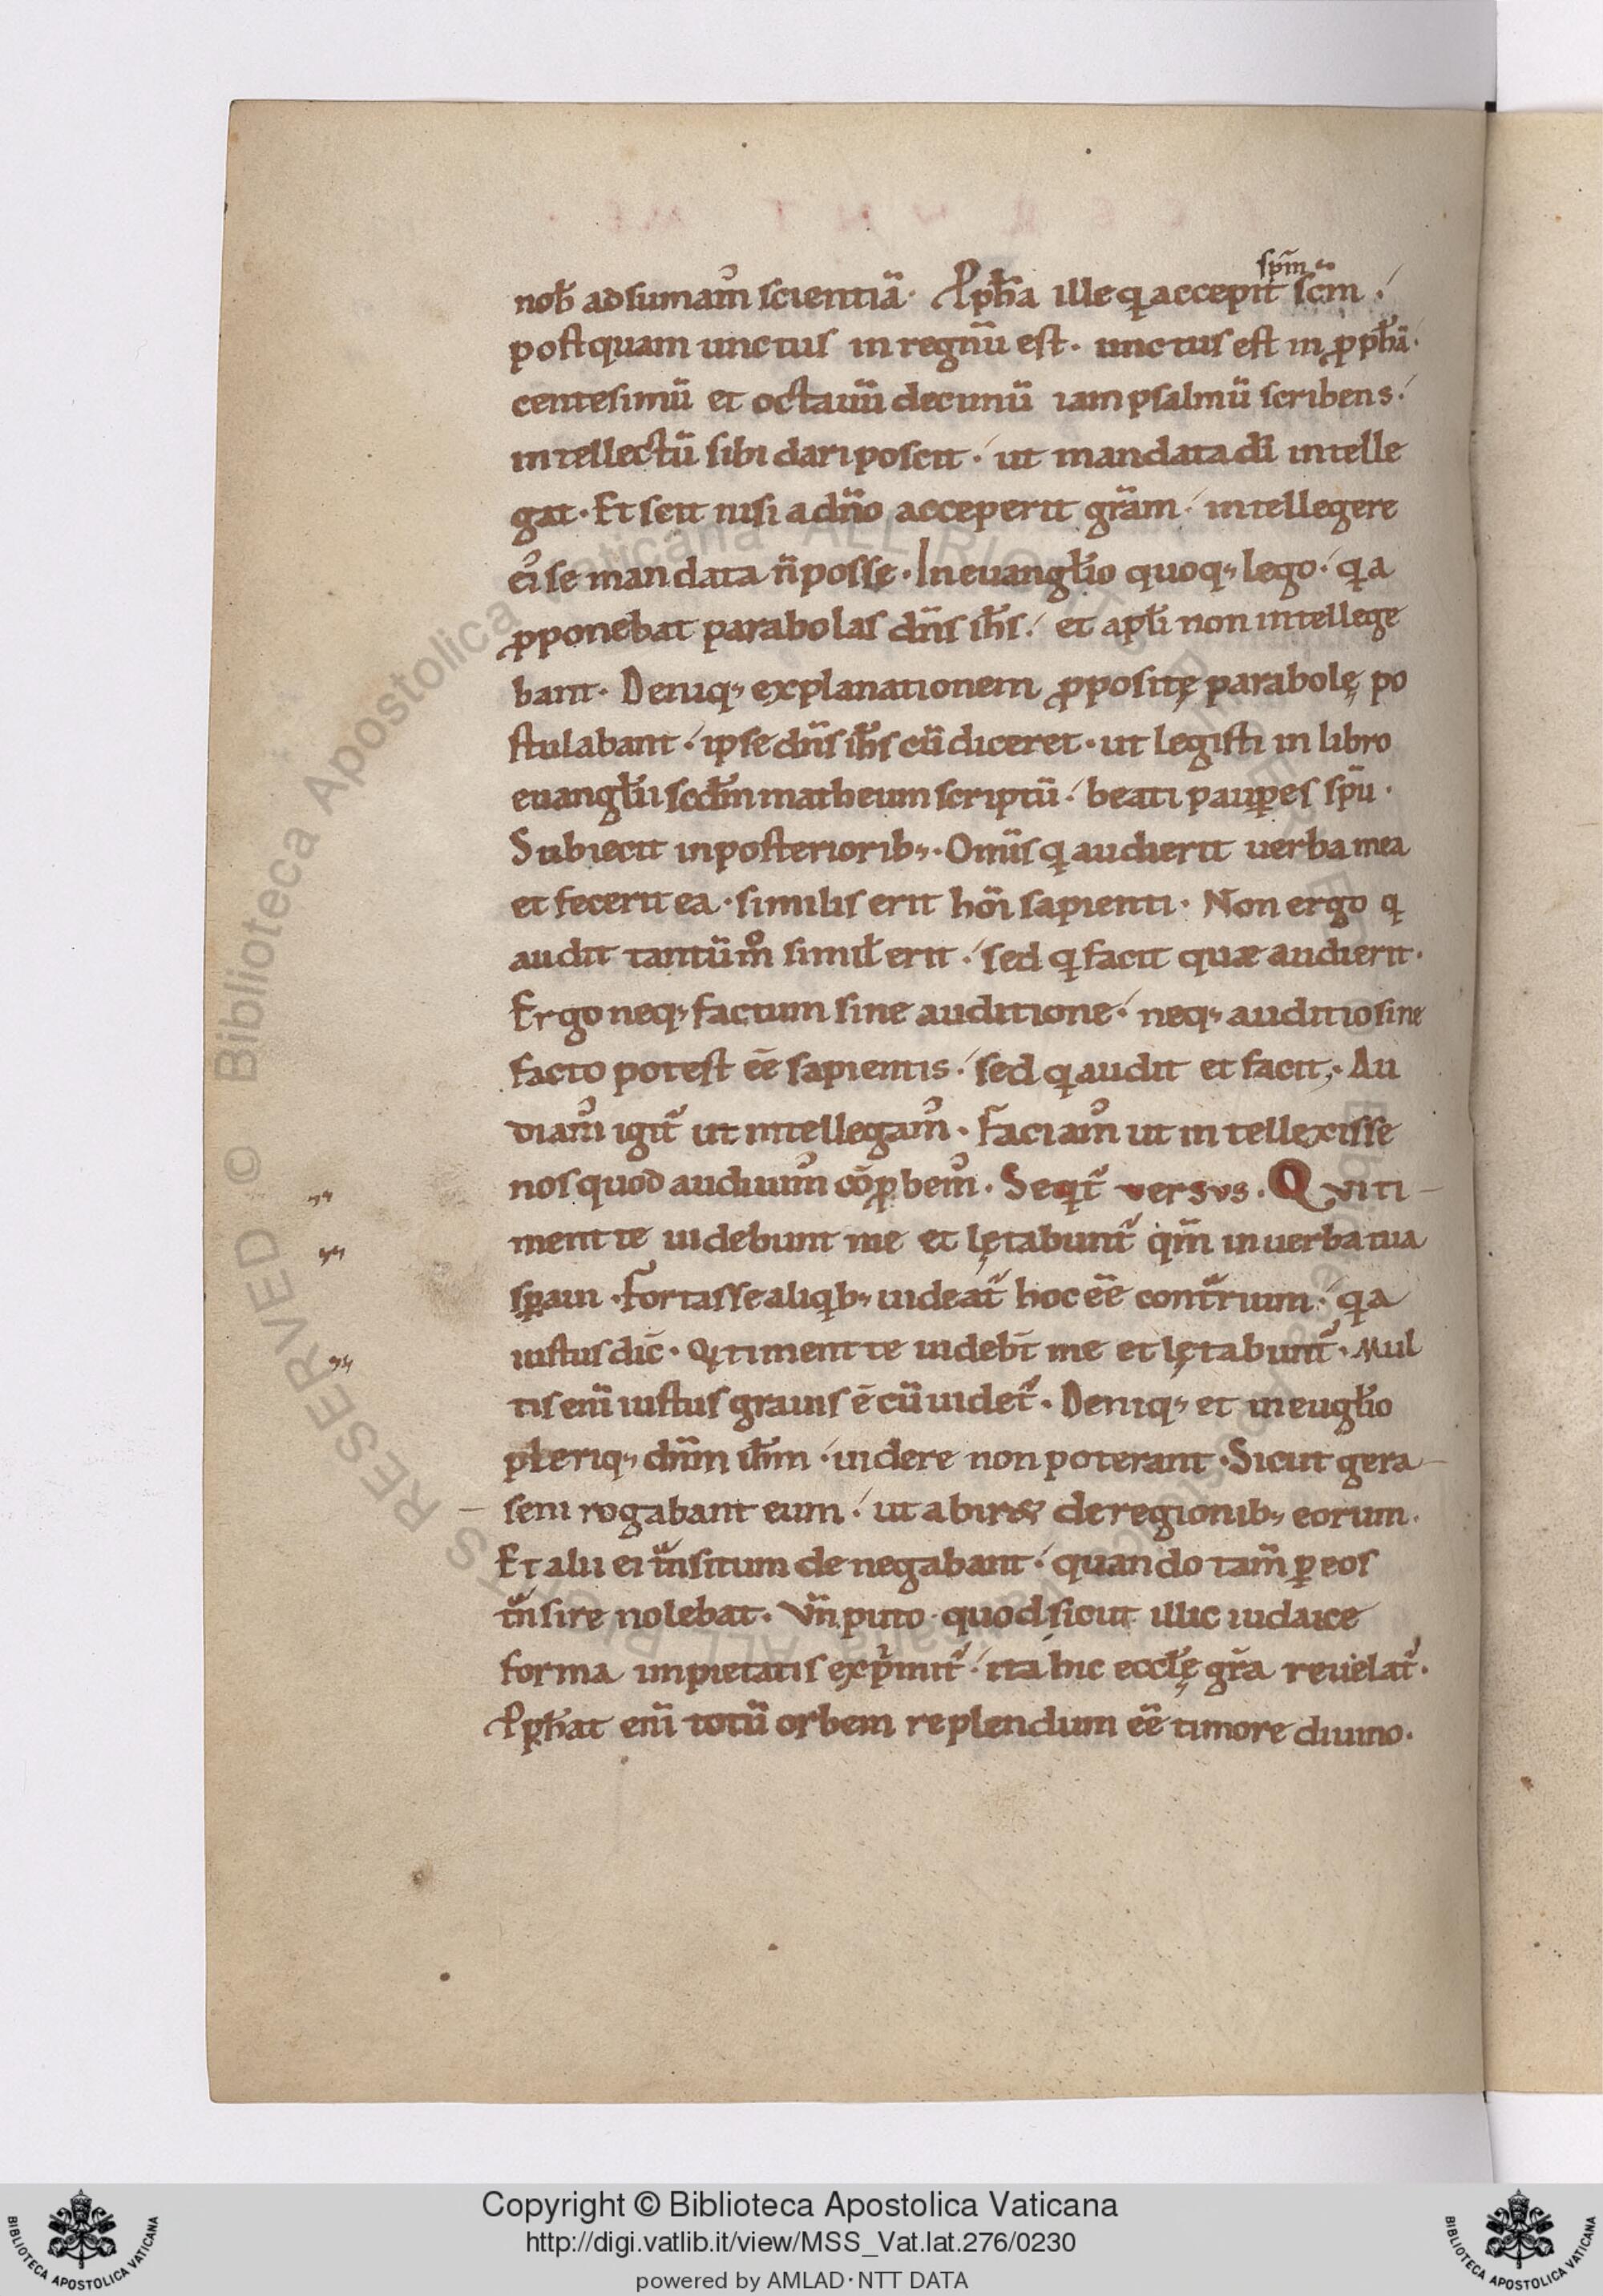 spm̄
nob̄ adsumam᾽ scientiā. P̱ph̄a ille q̨ accepit sc̄m.
postquam unctus in regnū est. unctus est in ꝓph̄ā.
centesimū et octauū decimū iam psalmū scribens.
intellectū sibi dari poscit. ut mandata dī intelle
gat. Et scit nisi a dn̄o acceperit gr̄am. intellegere
ei᾽ se mandata n̄ posse. In euangl̄io quoq; lego. qa
ꝓponebat parabolas dn̄s ih̄s. et apl̄i non intellege
bant. Deniq; explanationem ꝓpositę parabolę po
stulabant. ipse dn̄s ih̄s cū diceret. ut legisti in libro
euangl̄ii scdm̄ matheum scriptū. beati pauꝑes spū.
Subiecit in posteriorib;. Omīs q audierit uerba mea
et fecerit ea. similis erit hōi sapienti. Non ergo q
audit tantūmͦ simil̄ erit. sed q facit quæ audierit.
Ergo neq; factum sine auditione. neq; auditio sine
facto potest eē sapientis. sed q audit et facit;. Au
diam᾽ igit᾽ ut intellegam᾽. Faciam᾽ ut intellexisse
nos quod audiuim᾽ cōꝓbem᾽. Seqt᾽ versvs. Qvi ti
ment te uidebunt me et lętabunt᾽ qm̄ in uerba tua
sꝑaui. Fortasse aliqb; uideat᾽ hoc eē contrium. qa
iustus dic̄. Qi timent te uideb̄t me et lętabunt᾽. Mul
tis enī iustus grauis ē cū uidet᾽. Deniq; et in eugl̄io
pleriq; dn̄m ih̄m. uidere non poterant. Sicut gera
seni rogabant eum. ut abir& de regionib; eorum.
Et alii ei tn̄situm denegabant. quando tam̄ ꝑ eos
tn̄sire nolebat. Vn̄ puto quod sicut illic iudaice
forma impietatis exp̄mit᾽. ita hic eccl̄ę gr̄a reuelat᾽.
P̱ph̄at enī totū orbem replendum eē timore diuino.
Copyright © Biblioteca Apostolica Vaticana
http://digi.vatlib.it/view/MSS_Vat.lat.276/0230
powered by AMLAD·NTT DATA
BIBLIOTECA APOSTOLICA VATICANA
BIBLIOTECA APOSTOLICA VATICANA